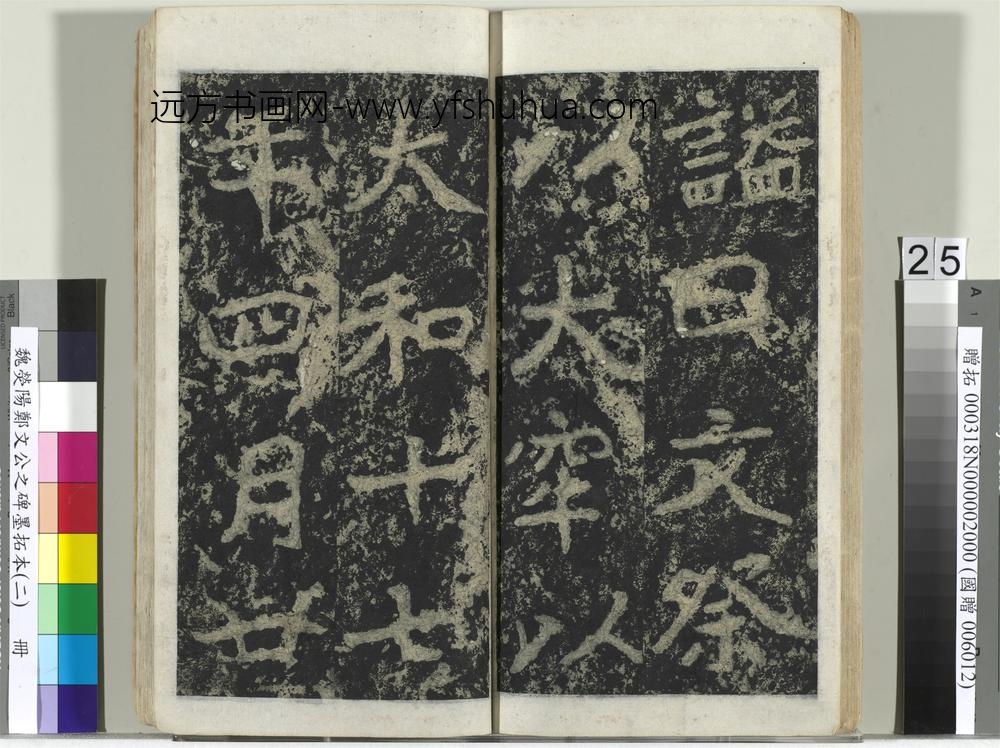 远方书画网-www.yfshuhua.com
謚曰文祭
以太牢以
太和十七
年四月廿
25
魏滎陽鄭文公之碑墨拓本(二) 冊
贈拓 000318N000002000 (國贈 006012)
Black
A
1